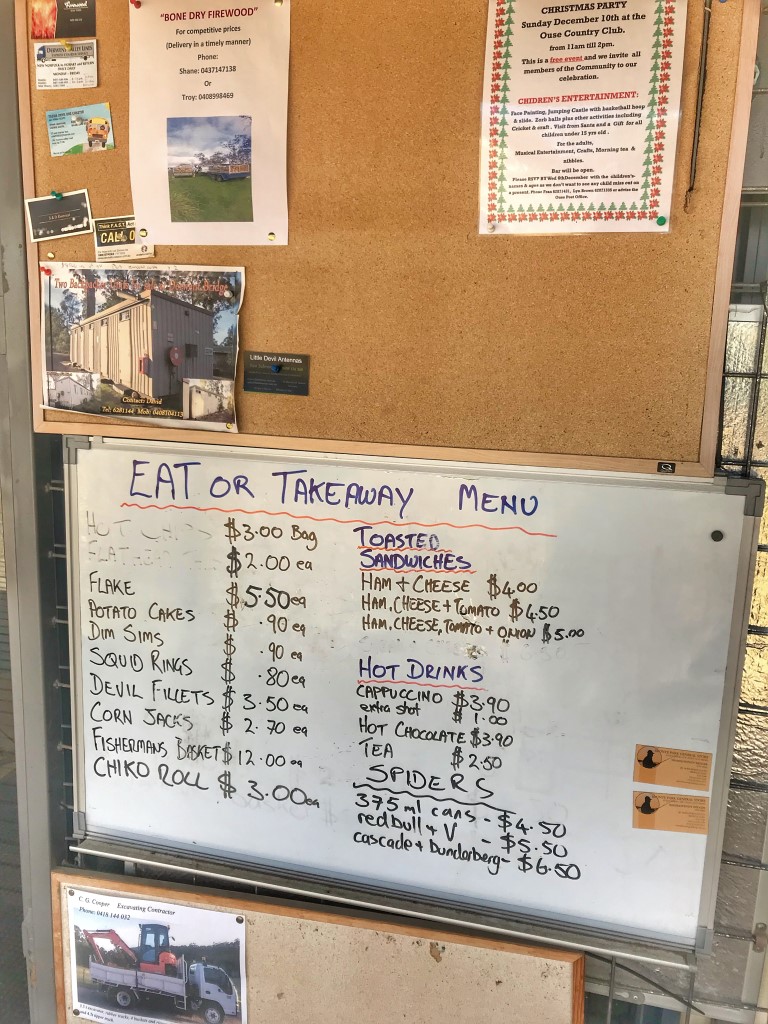 "BONE DRY FIREWOOD"
For competitive prices
(Delivery in a timely manner)
Phone:
Shane: 0437147138
Or
Troy: 0408998469
CHRISTMAS PARTY
Sunday December 10th at the
Ouse Country Club.
from 11am till 2pm.
This is a free event and we invite all
members of the Community to our
celebration.
CHIDREN'S ENTERTAINMENT:
Face Painting, Jumping Castle with basketball hoop
& slide. Zorb balls plus other activities including
Cricket & craft. Visit from Santa and a Gift for all
children under 15 yrs old.
For the adults,
Musical Entertainment, Crafts, Morning tea &
nibbles.
Bar will be open.
CALL 0
Two Backpackers
Contact David
Little Devil Antennas
EAT OR TAKEAWAY MENU
HOT CHIPS $3.00 Bag
$2.00 ea
FLAKE $5.50 ea
POTATO CAKES $ .90 ea
DIM SIMS $ .90 ea
SQUID RINGS $ .80 ea
DEVIL FILLETS $ 3.50 ea
CORN JACKS $ 2.70 ea
FISHERMANS BASKET $ 12.00 ea
CHIKO ROLL $ 3.00 ea
TOASTED
SANDWICHES
HAM + CHEESE $4.00
HAM, CHEESE + TOMATO $4.50
HAM, CHEESE, TOMATO + ONION $5.00
HOT DRINKS
CAPPUCCINO $3.90
extra shot $ 1.00
HOT CHOCOLATE $3.90
TEA $ 2.50
SPIDERS
375 ml cans - $4.50
redbull + V - $5.50
cascade + Bundarberg - $6.50
C. G. Cooper Excavating Contractor
Phone: 0418 144 032